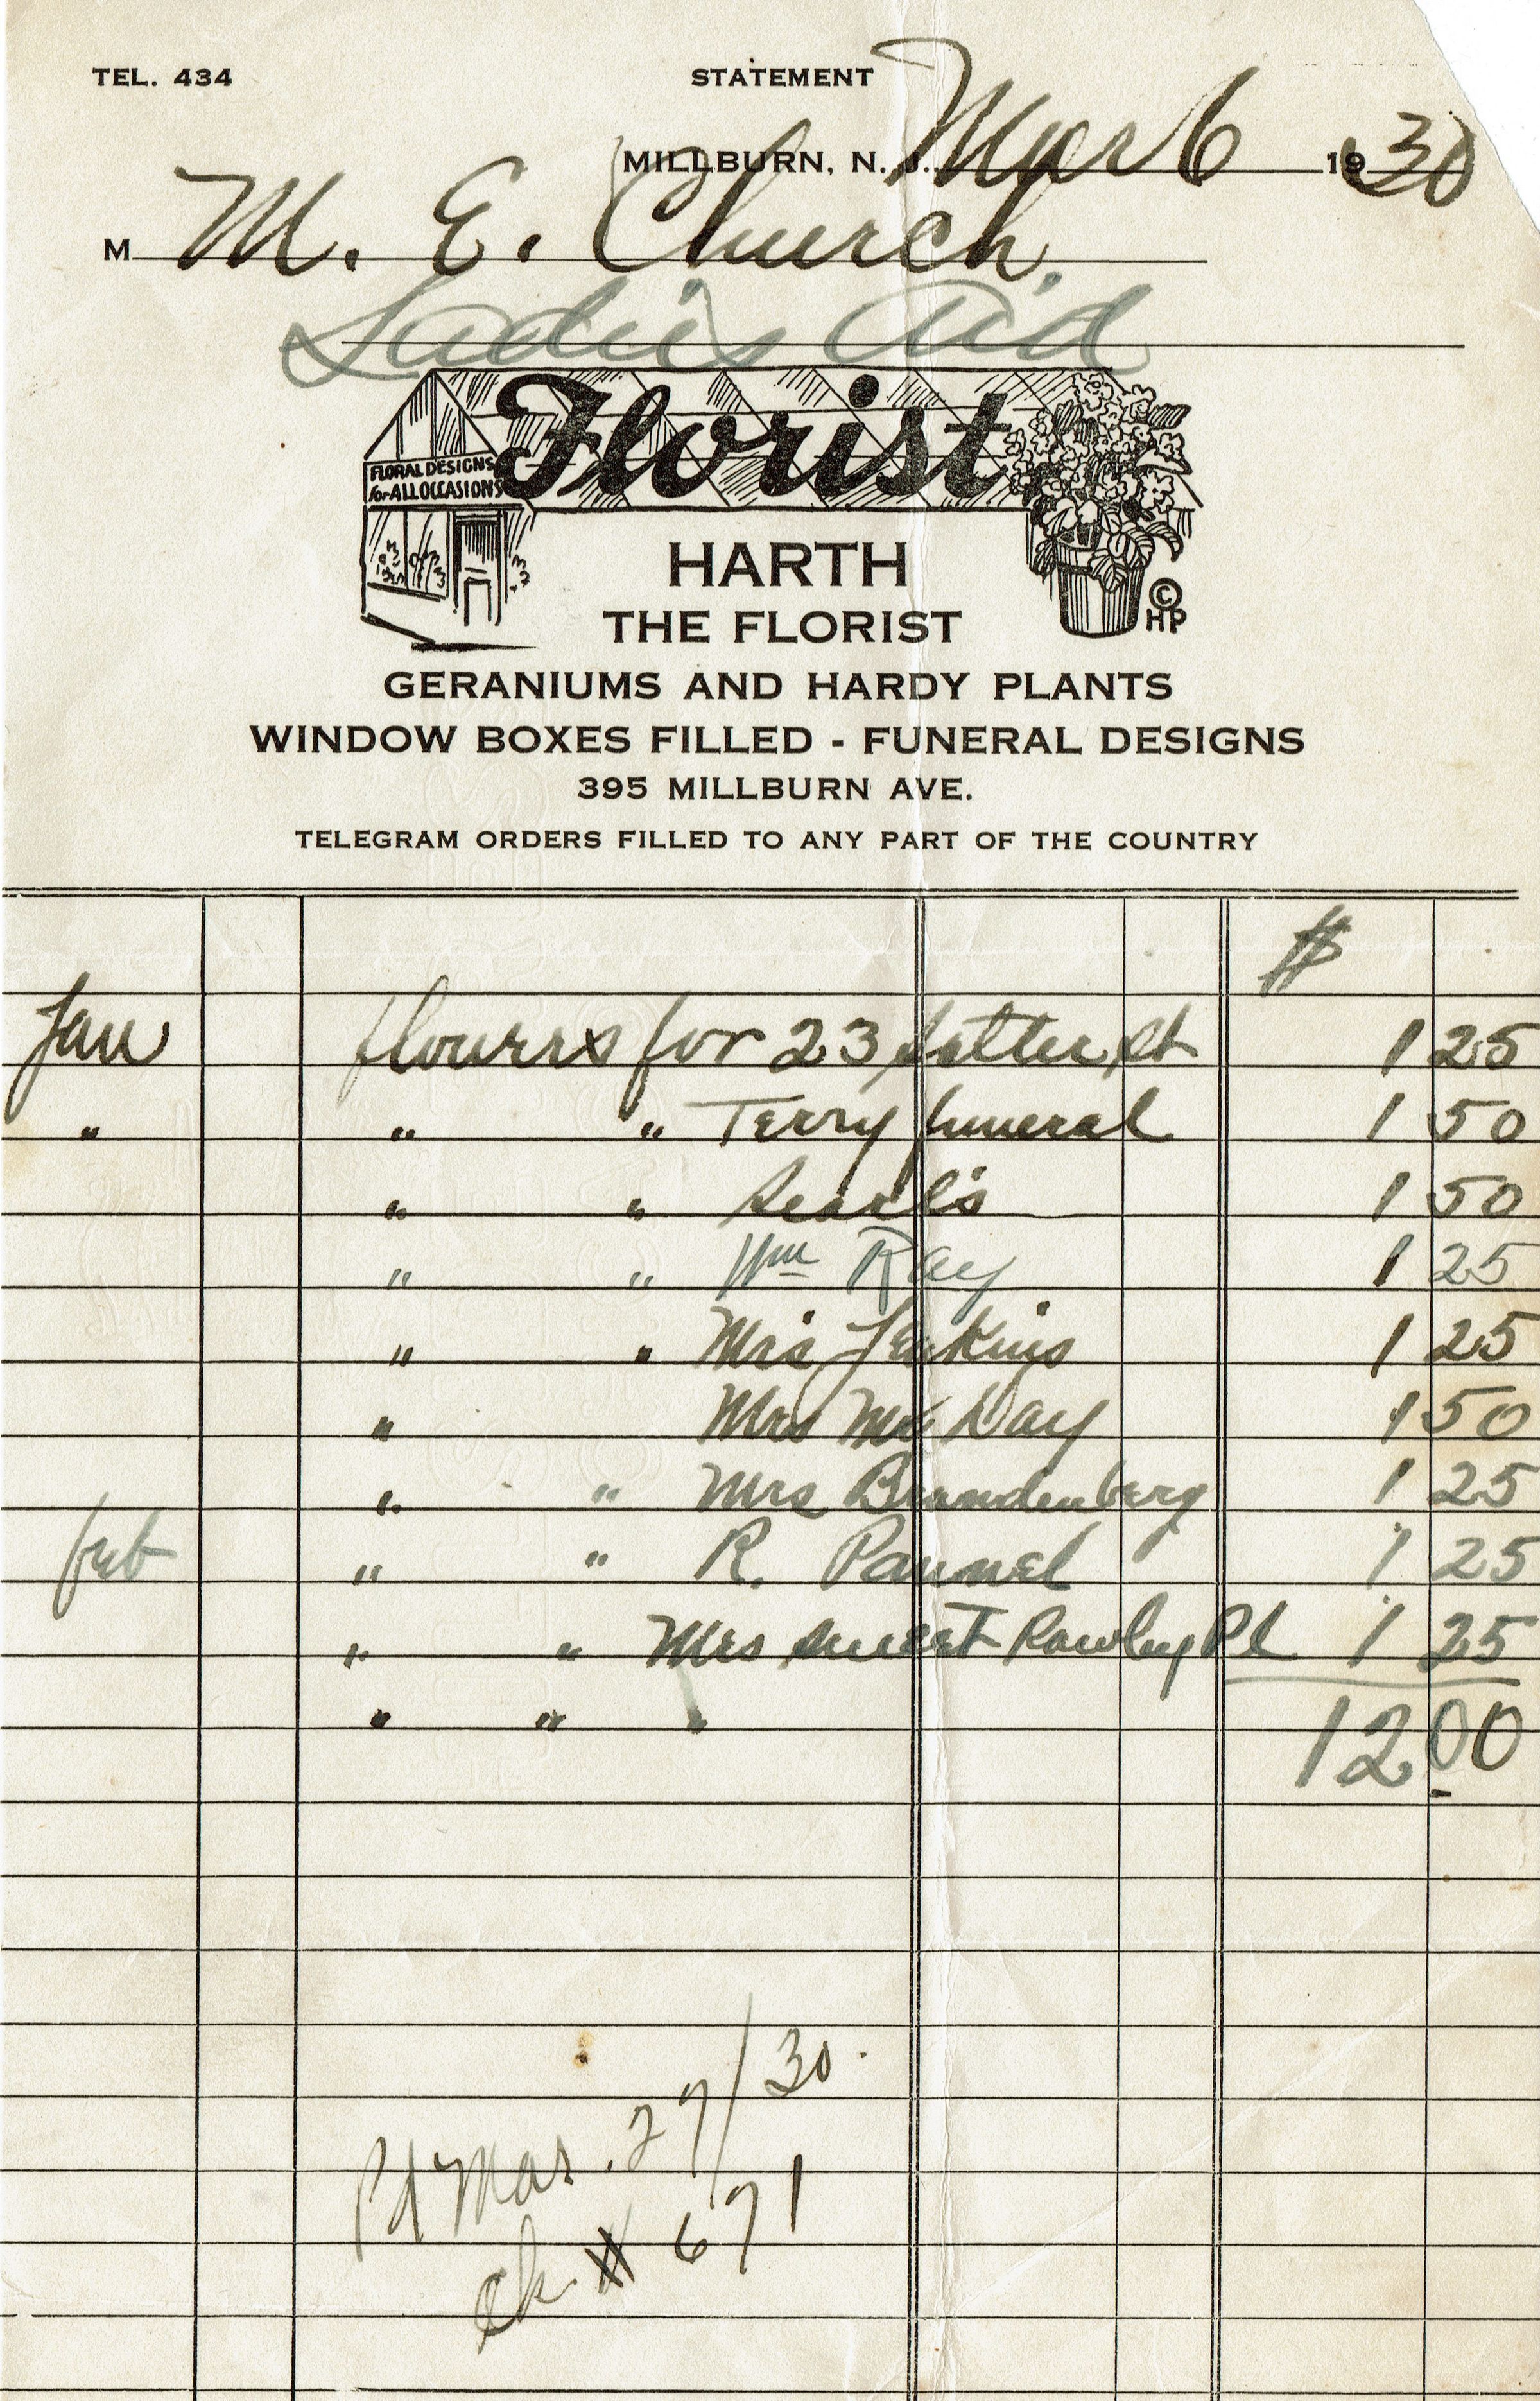 TEL. 434
STATEMENT
MILLBURN, N. J. Mar 6 1930
M M. E. Church.
Ladies Aid
Florist
FLORAL DESIGNS
for ALL OCCASIONS
HARTH
THE FLORIST
© HP
GERANIUMS AND HARDY PLANTS
WINDOW BOXES FILLED - FUNERAL DESIGNS
395 MILLBURN AVE.
TELEGRAM ORDERS FILLED TO ANY PART OF THE COUNTRY
$
Jan flowers for 23 1 25
" " " Terry funeral 1 50
" " Searl's 1 50
" " Wm Ray 1 25
" " Mrs Jenkins 1 25
" Mrs Mc Kay 1 50
" " Mrs Brandenberg 1 25
feb " " R. Pannel 1 25
" " Mrs Pl 1 25
" " " 12.00
Pd Mar. 27/30.
ck # 671